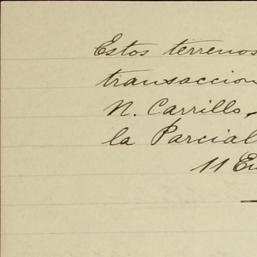 Estos terrenos
transaccion
N. Carrillo,
la Parcial
11 En